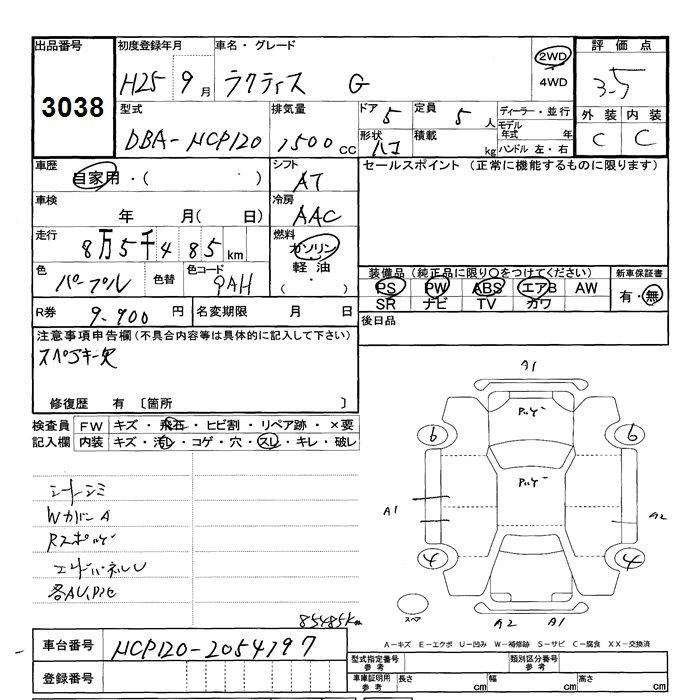 出品番号 初度登録年月 車名・グレード 2WD 評価点
3038 H25 9月 ラクティス G 4WD 3.5
型式 排気量 ドア 5 定員 5人 ディーラー・並行 外装 内装
DBA-NCP120 1500cc 形状 ハコ 積載 kg モデル年式 年 C C
ハンドル 左・右
車歴 自家用・( ) シフト AT セールスポイント (正常に機能するものに限ります)
車検 年 月( 日) 冷房 AAC
走行 8万5千485km 燃料 ガソリン
軽油
( ・ )
色 パープル 色替 色コード 9AH 装備品(純正品に限り○をつけてください) 新車保証書
PS PW ABS エアB AW 有・無
SR ナビ TV カワ
R券 9.900円 名変期限 月 日 後日品
注意事項申告欄(不具合内容等は具体的に記入して下さい)
スペアキー欠
修復歴 有 〔箇所 〕
検査員 FW キズ・飛石・ヒビ割・リペア跡・×要
記入欄 内装 キズ・汚レ・コゲ・穴・スレ・キレ・破レ
シートシミ
WカバーA
各AU,P凹
85485km
A1
6 6
A1 A2
4 4
スペア A2 A1
A-キズ E-エクボ U-凹み W-補修跡 S-サビ C-腐食 XX-交換済
車台番号 NCP120-2054797
登録番号
型式指定番号 参考 類別区分番号 参考
車庫証明用 参考 長さ cm 幅 cm 高さ cm